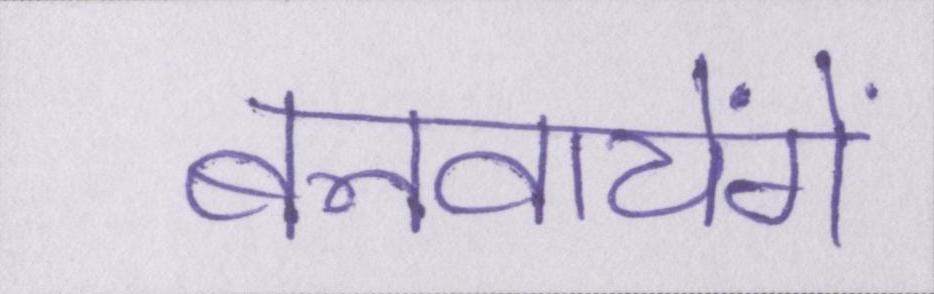 बनवायेंगें